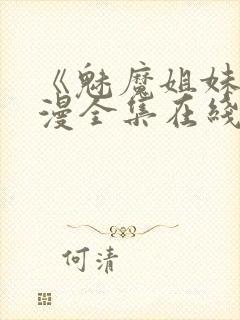 《魅魔姐妹
漫全集在綫
何清